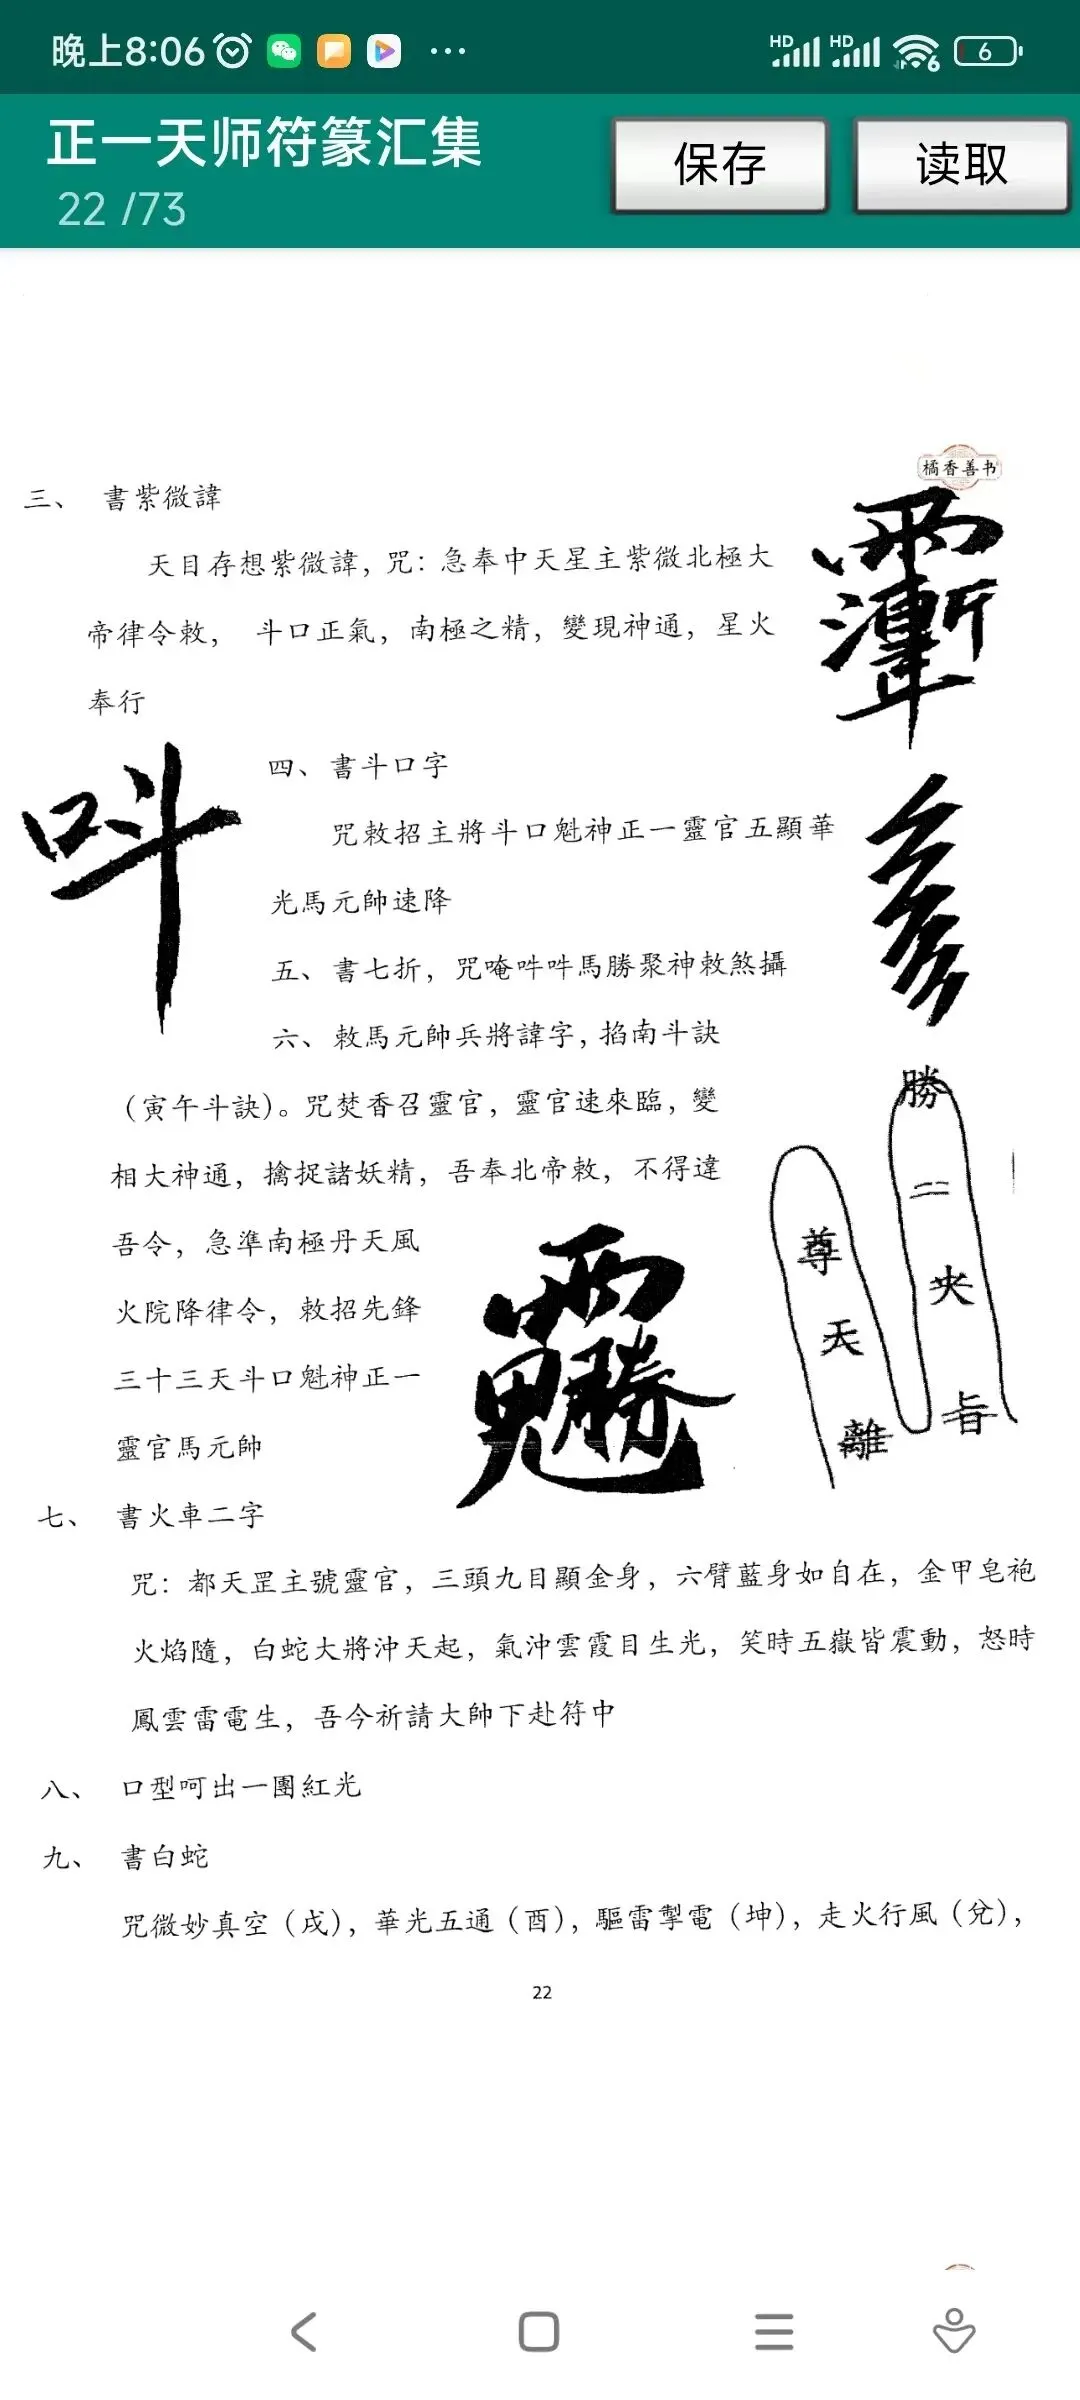 晚上8:06
HD
HD
6
6
正一天师符篆汇集
22 /73
保存
读取
橘香善书
三、 書紫微諱
天目存想紫微諱，咒：急奉中天星主紫微北極大
帝律令敕， 斗口正氣，南極之精，變現神通，星火
奉行
四、書斗口字
咒敕招主將斗口魁神正一靈官五顯華
光馬元帥速降
五、書七折，咒唵吽吽馬勝聚神敕煞攝
六、敕馬元帥兵將諱字，掐南斗訣
（寅午斗訣）。咒焚香召靈官，靈官速來臨，變
相大神通，擒捉諸妖精，吾奉北帝敕，不得違
吾令，急準南極丹天風
火院降律令，敕招先鋒
三十三天斗口魁神正一
靈官馬元帥
勝
二
尊
天
離
七、 書火車二字
咒：都天罡主號靈官，三頭九目顯金身，六臂藍身如自在，金甲皂袍
火焰隨，白蛇大將沖天起，氣沖雲霞目生光，笑時五嶽皆震動，怒時
鳳雲雷電生，吾今祈請大帥下赴符中
八、 口型呵出一團紅光
九、 書白蛇
咒微妙真空（戌），華光五通（酉），驅雷掣電（坤），走火行風（兌），
22